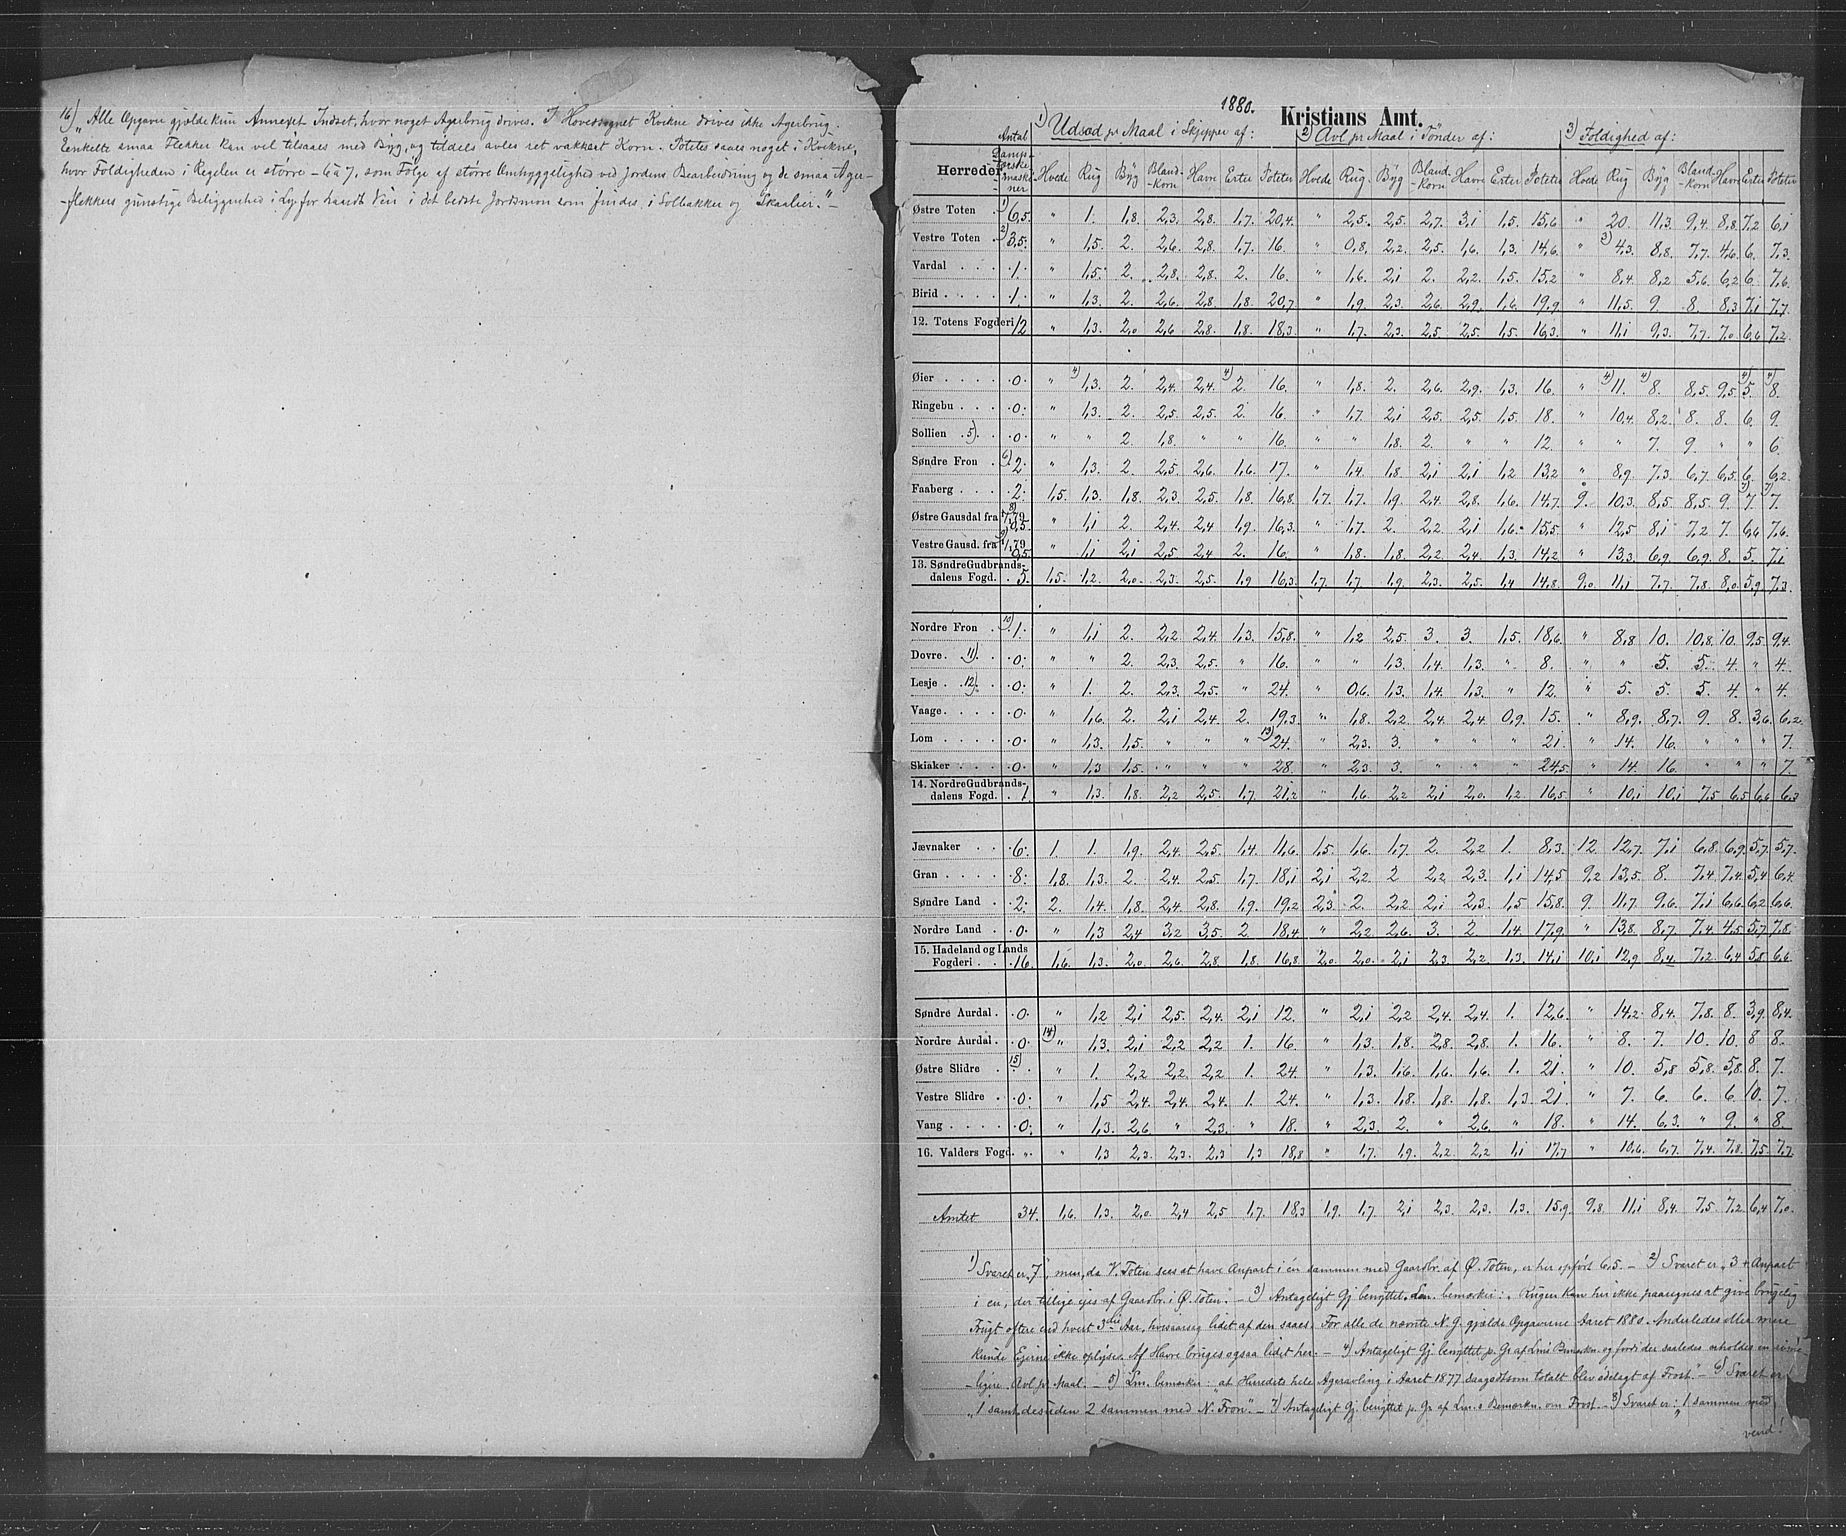 16) „Alle Opgaver gjælde kun Annexet Indset, hvor noget Agerbrug drives. I Hovedsognet Kvikne drives ikke Agerbrug.
Enkelte smaa Flekker kan vel tilsaaes med Byg, og tildels avles ret vakkert Korn. Potetes saaes noget i Kvikne,
hvor Foldigheden i Regelen er større - 6 à 7, som Følge af større Omhyggelighed ved Jordens Bearbeidning og de smaa Ager-
-flekkers gunstige Beliggenhed i Ly for haardt Veir i det bedste Jordsmon som findes, i Solbakker og "Skaalier." -
1880. Kristians Amt.
Antal Damp-tærske maski-ner 1) Udsæd pr Maal i Skjepper af: 2) Avl pr Maal i Tønder af: 3) Foldighed af:
Herreder. Hvede Rug Byg Bland-korn Havre Erter Poteter Hvede Rug Byg Bland-korn Havre Erter Poteter Hvede Rug Byg Bland-korn Havre Erter Poteter
Østre Toten 1) 6,5. " 1. 1,8. 2,3. 2,8. 1,7. 20,4. " 2,5. 2,5. 2,7. 3,1 1,5. 15,6 " 20. 11,3. 9,4. 8,8. 7,2 6,1
Vestre Toten 2) 3,5. " 1,5. 2. 2,6. 2,8. 1,7. 16. " 0,8. 2,2. 2,5. 1,6. 1,3. 14,6. " 3) 4,3. 8,8. 7,7. 4,6. 6. 7,3.
Vardal 1. " 1,5. 2. 2,8. 2,8. 2. 16. " 1,6. 2,1 2. 2,2. 1,5. 15,2 " 8,4. 8,2 5,6 6,2 6. 7,6.
Birid 1. " 1,3. 2. 2,6. 2,8 1,8. 20,7. " 1,9. 2,3. 2,6 2,9. 1,6. 19,9. " 11,5. 9. 8. 8,3. 7,1 7,7.
12. Totens Fogderi 12 " 1,3. 2,0 2,6 2,8. 1,8. 18,3. " 1,7. 2,3. 2,5 2,5. 1,5. 16,3. " 11,1 9,3. 7,7. 7,0 6,6 7,2.
Øier 0. " 4) 1,3. 2. 2,4. 2,4. 4) 2. 16. " 1,8. 2. 2,6. 2,9. 1,3. 16. " 4) 11. 4) 8. 8,5. 9,5. 4) 5. 4) 8.
Ringebu 0. " 1,3. 2. 2,5. 2,5. 2. 16. " 1,7. 2,1 2,5. 2,5. 1,5. 18. " 10,4. 8,2. 8. 8. 6. 9.
Sollien 5) 0. " " 2. 1,8. " " 16. " " 1,8. 2. " " 12. " " 7. 9. " " 6.
Søndre Fron 6) 2. " 1,3. 2. 2,5 2,6. 1,6. 17. " 1,4. 1,8. 2,1 2,1 1,2 13,2 " 8,9. 7,3. 6,7. 6,5. 6. 6,2.
Faaberg 2. 1,5. 1,3. 1,8. 2,3 2,5. 1,8. 16,8. 1,7. 1,7. 1,9. 2,4. 2,8. 1,6. 14,7. 9. 10,3. 8,5. 8,5. 9. 7) 7. 7) 7.
Østre Gausdal fra 1/1 79 8) 0,5. " 1,1 2. 2,4. 2,4 1,9. 16,3. " 1,7. 2. 2,2 2,1 1,6. 15,5. " 12,5 8,1 7,2 7. 6,6 7,6.
Vestre Gausd. fra 1/1 79 9) 0,5. " 1,1 2,1 2,5 2,4. 2. 16. " 1,8. 1,8. 2,2 2,4. 1,3. 14,2. " 13,3. 6,9. 6,9. 8. 5. 7,1
13. Søndre Gudbrands-
dalens Fogd. 5. 1,5. 1,2. 2,0. 2,3. 2,5. 1,9 16,3. 1,7. 1,7. 1,9. 2,3. 2,5. 1,4 14,8. 9,0 11,1 7,7. 7,8. 8,0 5,9 7,3.
Nordre Fron 10) 1. " 1,1 2. 2,2 2,4. 1,3. 15,8. " 1,2 2,5. 3. 3. 1,5. 18,6. " 8,8 10. 10,8. 10. 9,5 9,4.
Dovre 11) 0. " " 2. 2,3. 2,5. " 16. " " 1,3. 1,4. 1,3. " 8. " " 5. 5. 4. " 4.
Lesje 12) 0. " 1. 2. 2,3. 2,5. " 24. " 0,6. 1,3. 1,4. 1,3. " 12. " 5. 5. 5. 4. " 4.
Vaage 0. " 1,6. 2. 2,1 2,4. 2. 19,3 " 1,8. 2,2. 2,4. 2,4 0,9. 15. " 8,9. 8,7. 9. 8. 3,6. 6,2.
Lom 0. " 1,3. 1,5. " " " 13) 24. " 2,3. 3. " " " 21. " 14. 16. " " " 7.
Skiaker 0. " 1,3 1,5. " " " 28. " 2,3. 3. " " " 24,5. " 14. 16. " " " 7.
14. Nordre Gudbrands-
dalens Fogd. 1. " 1,3. 1,8. 2,2 2,5. 1,7. 21,2 " 1,6. 2,2 2,1 2,0. 1,2. 16,5 " 10,1 10,1 7,5 6,5 6,6 6,3
Jævnaker 6. 1. 1. 1,9. 2,4. 2,5. 1,4. 11,6. 1,5. 1,6. 1,7. 2. 2,2 1. 8,3. 12. 12,7. 7,1 6,8 6,9. 5,7. 5,7.
Gran 8. 1,8. 1,3. 2. 2,4. 2,5. 1,7. 18,1 2,1 2,2. 2 2,2 2,3. 1,1 14,5 9,2 13,5 8. 7,4. 7,4. 5,4 6,4.
Søndre Land 2. 2. 1,4. 1,8. 2,4. 2,8. 1,9. 19,2 2,3. 2. 2,2 2,1 2,3. 1,5 15,8. 9. 11,7. 9,6. 7,1 6,6 6,2 6,6.
Nordre Land 0. " 1,3 2,4 3,2 3,5. 2. 18,4 " 2,2. 2,6. 3. 2. 1,4. 17,9. " 13,8. 8,7. 7,4. 4,5. 5,7. 7,8.
15. Hadeland og Lands
Fogderi 16. 1,6. 1,3. 2,0 2,6. 2,8 1,8. 16,8 2,0. 2,0. 2,1 2,3. 2,2. 1,3. 14,1 10,1 12,9 8,4 7,2 6,4 5,8 6,6.
Søndre Aurdal 0. " 1,2 2,1 2,5. 2,4. 2,1 12. " 2,1 2,2 2,4. 2,4. 1. 12,6. " 14,2. 8,4. 7,8. 8. 3,9. 8,4.
Nordre Aurdal 0. 14) " 1,3. 2,1 2,2 2,2 1. 16. " 1,3. 1,8. 2,8. 2,8. 1. 16. " 8. 7. 10. 10. 8 8.
Østre Slidre 15) " 1. 2,2 2,2. 2,2 1. 24. " 1,3. 1,6. 1,6. 1,6. 1. 21. " 10. 5,8 5,8. 5,8. 8. 7.
Vestre Slidre 0. " 1,5 2,4. 2,4. 2,4. 1. 24. " 1,3. 1,8. 1,8. 1,8. 1,3. 21. " 7. 6. 6. 6. 10. 7.
Vang 0. " 1,3. 2,6 " 2,3. " 18. " 2,3. 2. " 2,6. " 18. " 14. 6,3. " 9. " 8.
16. Valders Fogd. " " 1,3 2,3. 2,3. 2,3 1,3 18,8 " 1,7. 1,9. 2,2. 2,2 1,1 17,7 " 10,6. 6,7. 7,4. 7,8. 7,5. 7,7.
Amtet 34. 1,6. 1,3. 2,0. 2,4 2,5 1,7. 18,3 1,9. 1,7. 2,1 2,3. 2,3. 1,3. 15,9. 9,8. 11,1 8,4. 7,5 7,2 6,4 7,0.
1) Svaret er „7", men, da V. Toten sees at have Anpart i én sammen med Gaardbr. af Ø. Toten, er her opført 6,5. - 2) Svaret er „3 + Anpart
i en, der tillige ejes af Gaardbr. i Ø. Toten." - 3) Antageligt Gj. benyttet. Lm. bemærker: „Rugen kan her ikke paaregnes at give brugelig
Frugt oftere end hvert 3die Aar, hvesaarsag lidet af den saaes. For alle de nævnte N. g. gjælde Opgaverne Aaret 1880. Anderledes eller mere
kunde Ejerne ikke oplyse. Af Havre bruges ogsaa lidet her. - 4) Antageligt Gj. benyttet p. Gr. af Lm's Bemærkn. og fordi der saaledes erholdes en rime-
-ligere Avl pr. Maal. - 5) Lm. bemærker: „at Herredets hele Ageravling i Aaret 1877 saagodtsom totalt blev ødelagt af Frost." - 6) Svaret er
„1 samt desuden 2 sammen med N. Fron." - 7) Antageligt Gj. benyttet p. Gr. af Lm.s Bemærkn. om Frost. - 8) Svaret er: „1 sammen med
vend!